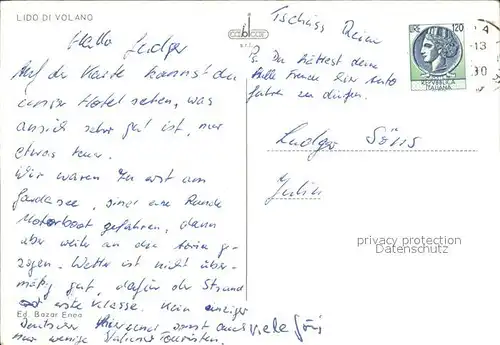 LIDO DI VOLANO
Hallo Ludger
Auf der Karte kannst du
unser Hotel sehen, was
ansich sehr gut ist, nur
etwas teuer.
Wir waren zu erst am
Gardasee, sind eine Runde
Motorboot gefahren, dann
aber weiter an die Adria ge-
zogen. Wetter ist nicht über-
mäßig gut, dafür der Strand
erste Klasse. Kein einziger
Deutscher hier und sonst auch
nur wenige Touristen.
viele
Ed. Bazar Enea
Tschüss
P.S. Du hättest deine
helle Freude hier Auto
fahren zu dürfen.
LIRE 120
REPVBBLICA
ITALIANA
Ludger
privacy protection
Datenschutz